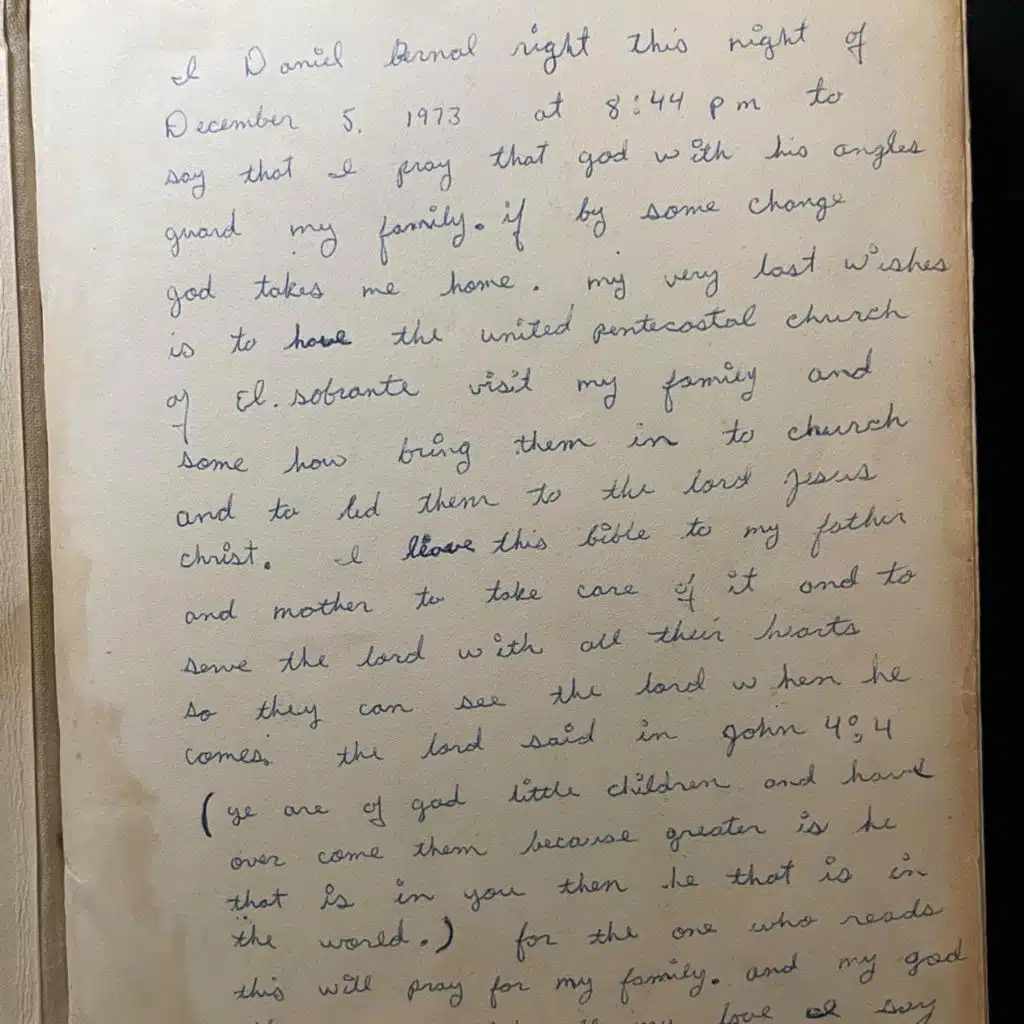 I Daniel Bernal right this night of
December 5, 1973 at 8:44 pm to
say that I pray that god with his angles
guard my family. if by some change
god takes me home. my very last wishes
is to have the united pentecostal church
of El. sobrante visit my family and
some how bring them in to church
and to led them to the lord Jesus
christ. I leave this bible to my father
and mother to take care of it and to
serve the lord with all their hearts
so they can see the lord when he
comes. the lord said in John 4:4
(ye are of god little children and have
over come them because greater is he
that is in you then he that is in
the world.) for the one who reads
this will pray for my family. and my god
my love I say